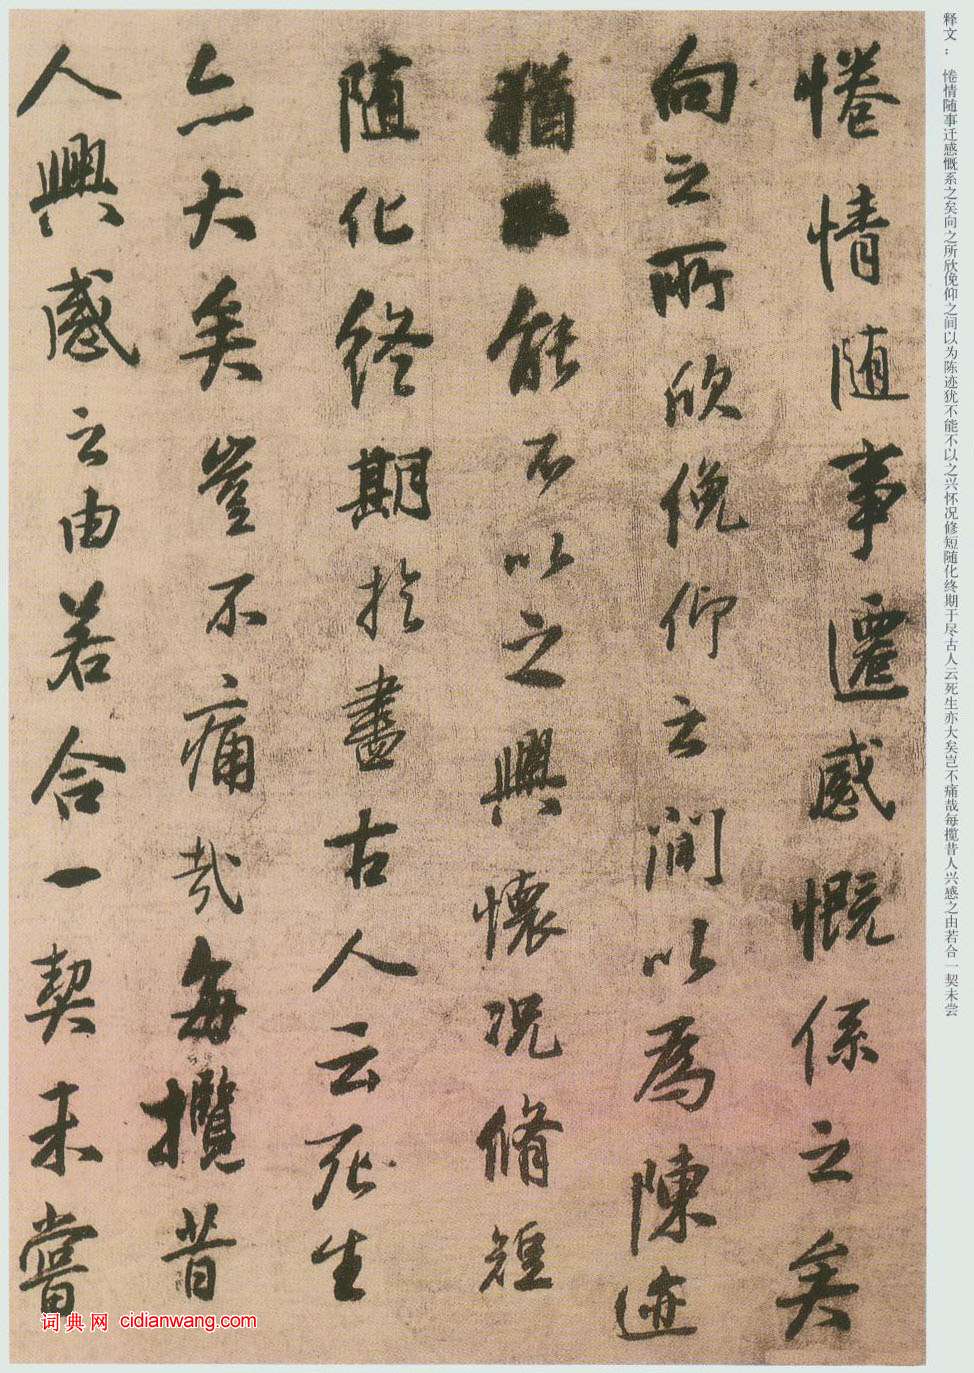 释文： 惓情随事迁感慨系之矣向之所欣俛仰之间以为陈迹犹不能不以之兴怀况修短随化终期于尽古人云死生亦大矣岂不痛哉每揽昔人兴感之由若合一契未尝
惓情随事遷感慨係之矣
向之所欣俛仰之間以為陳迹
猶不能不以之興懷况脩短
随化終期於盡古人云死生
亦大矣豈不痛哉每攬昔
人興感之由若合一契未嘗
词典网 cidianwang.com